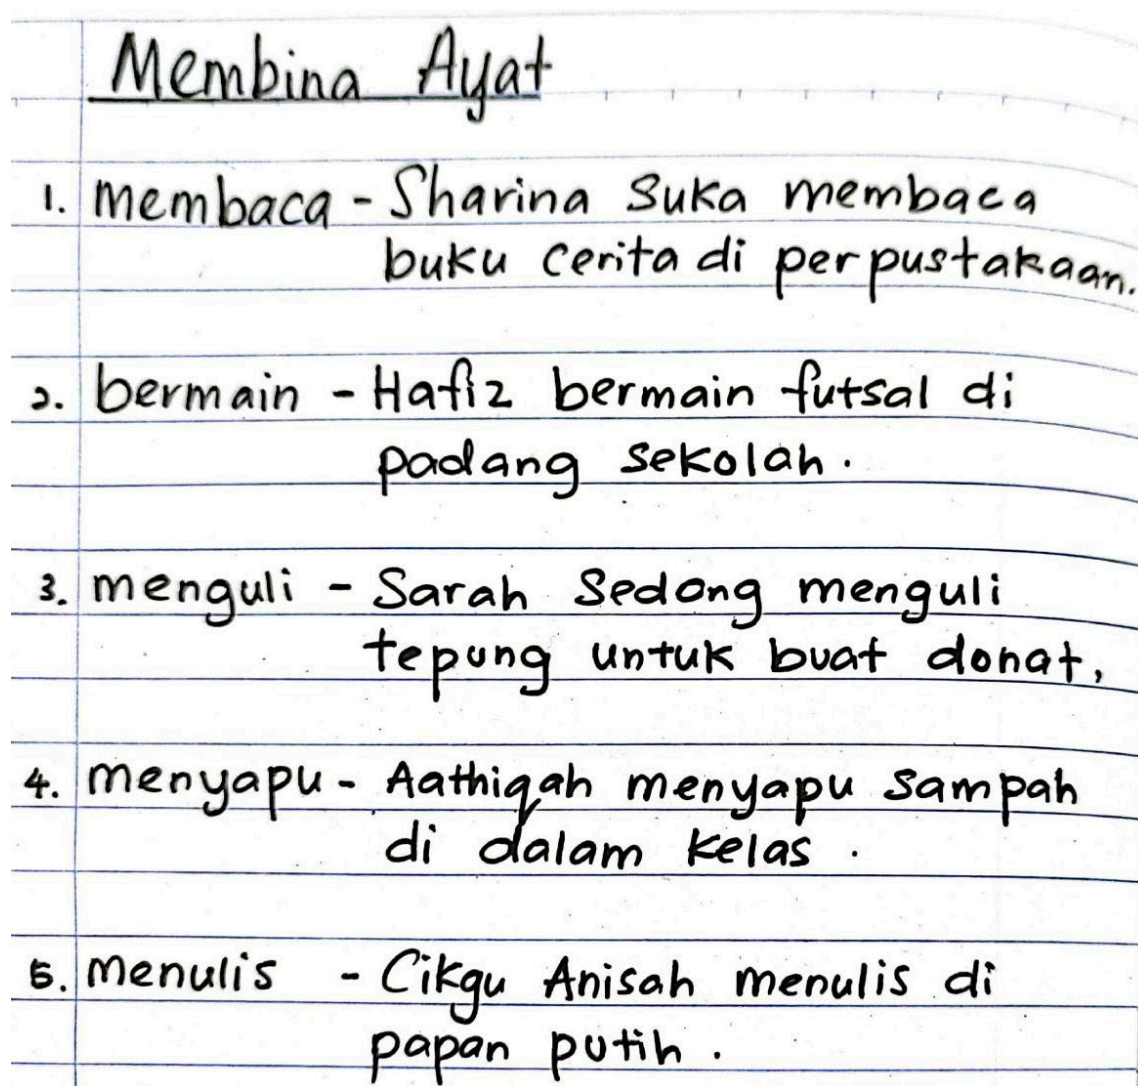 Membina Ayat
1. membaca - Sharina suka membaca
buku cerita di perpustakaan.
2. bermain - Hafiz bermain futsal di
padang sekolah.
3. menguli - Sarah sedang menguli
tepung untuk buat donat,
4. menyapu - Aathiqah menyapu sampah
di dalam kelas.
5. menulis - Cikgu Anisah menulis di
papan putih.